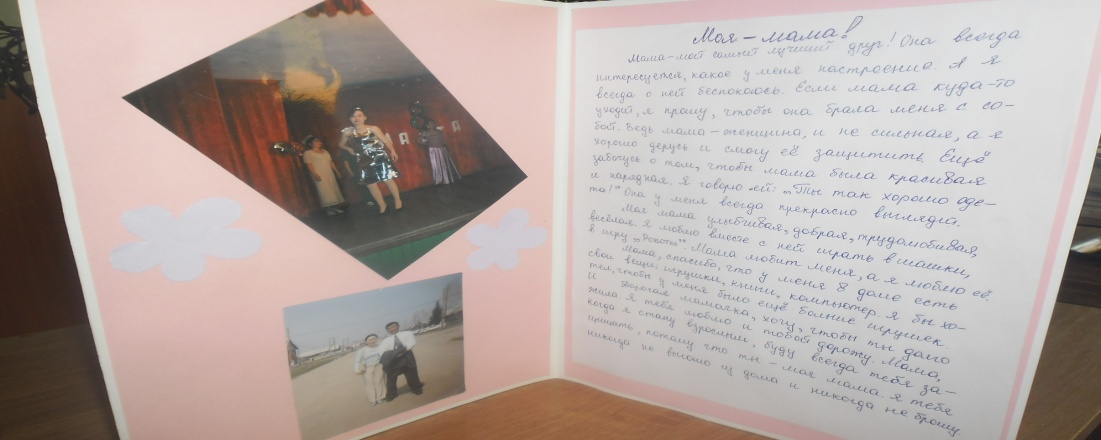 Моя - мама!
Мама - мой самый лучший друг! Она всегда
интересуется, какое у меня настроение. А я
всегда о ней беспокоюсь. Если мама куда-то
уходит, я прошу, чтобы она брала меня с со-
бой. Ведь мама - женщина, и не сильная, а я
хорошо дерусь и смогу её защитить. Ещё
забочусь о том, чтобы мама была красивая
и нарядная. Я говорю ей: „Ты так хорошо оде-
та!" Она у меня всегда прекрасно выглядит.
Моя мама улыбчивая, добрая, трудолюбивая,
весёлая. Я люблю вместе с ней играть в шашки,
в игру „Роботы". Мама любит меня, а я люблю её.
Мама, спасибо, что у меня в доме есть
свои вещи: игрушки, книги, компьютер. Я бы хо-
тел, чтобы у меня было ещё больше игрушек.
И дорогая мамочка, хочу, чтобы ты долго
жила. Я тебя люблю и тобой дорожу. Мама,
когда я стану взрослым, буду всегда тебя за-
щищать, потому что ты - моя мама. Я тебя
никогда не выгоню из дома и никогда не брошу